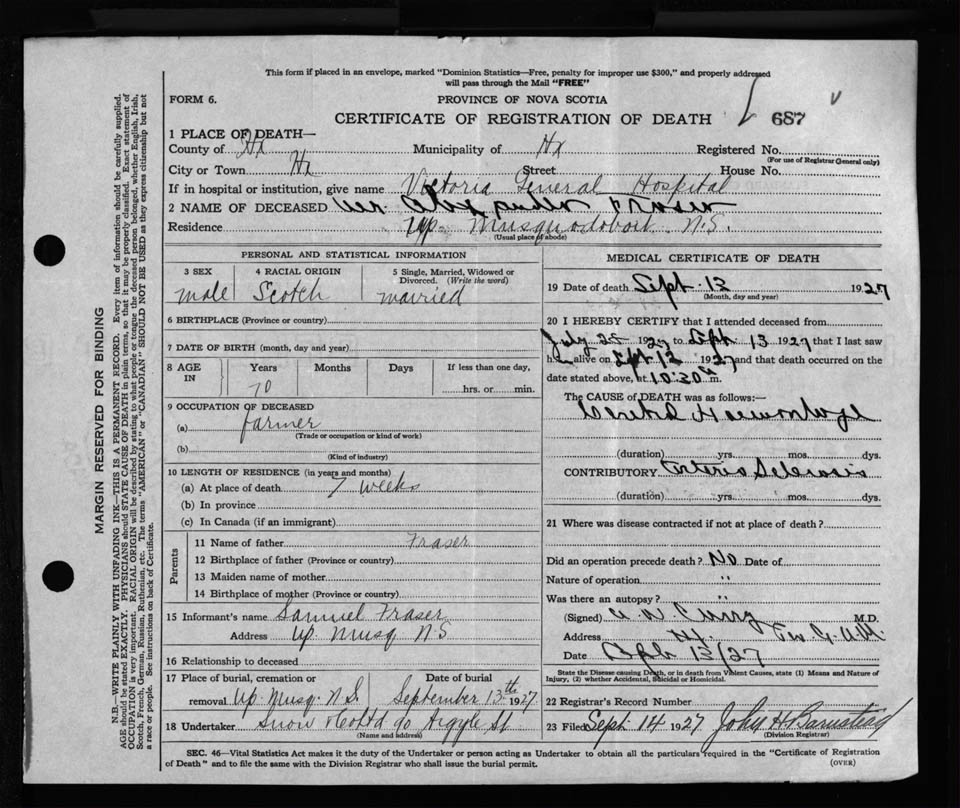 This form if placed in an envelope, marked "Dominion Statistics—Free, penalty for improper use $300," and properly addressed
will pass through the Mail "FREE"
FORM 6.
PROVINCE OF NOVA SCOTIA
CERTIFICATE OF REGISTRATION OF DEATH
687
1 PLACE OF DEATH—
County of Hx Municipality of Hx Registered No.
(For use of Registrar General only)
City or Town Hx Street House No.
If in hospital or institution, give name Victoria General Hospital
2 NAME OF DECEASED Fraser
Residence Up. Musquodoboit N.S.
(Usual place of abode)
PERSONAL AND STATISTICAL INFORMATION
3 SEX 4 RACIAL ORIGIN 5 Single, Married, Widowed or
Divorced. (Write the word)
male Scotch married
6 BIRTHPLACE (Province or country)
7 DATE OF BIRTH (month, day and year)
8 AGE IN Years Months Days If less than one day,
70 hrs. or min.
9 OCCUPATION OF DECEASED
(a) farmer
(Trade or occupation or kind of work)
(b)
(Kind of industry)
10 LENGTH OF RESIDENCE (in years and months)
(a) At place of death 7 weeks
(b) In province
(c) In Canada (if an immigrant)
Parents
11 Name of father Fraser
12 Birthplace of father (Province or country)
13 Maiden name of mother
14 Birthplace of mother (Province or country)
15 Informant's name Samuel Fraser
Address Up. Musq N S
16 Relationship to deceased
17 Place of burial, cremation or Date of burial
removal Up. Musq. N.S. September 13th 1927
18 Undertaker Snow & Co Ltd 90 Argyle St
(Name and address)
MEDICAL CERTIFICATE OF DEATH
19 Date of death Sept. 13 1927
(Month, day and year)
20 I HEREBY CERTIFY that I attended deceased from
July 25 1927 to Sept. 13 1927 that I last saw
h alive on Sept 12 1927 and that death occurred on the
date stated above, at 10:30 m.
The CAUSE of DEATH was as follows:—
Cerebral Haemorrhage
(duration) yrs. mos. dys.
CONTRIBUTORY Arterio Sclerosis
(duration) yrs. mos. dys.
21 Where was disease contracted if not at place of death?
Did an operation precede death? No Date of
Nature of operation "
Was there an autopsy? "
(Signed) M.D.
Address Hx
Date Sept 13/27
State the Disease causing Death, or in death from Violent Causes, state (1) Means and Nature of
Injury, (2) whether Accidental, Suicidal or Homicidal.
22 Registrar's Record Number
23 Filed Sept 14 1927 John H Barnstead
(Division Registrar)
SEC. 46—Vital Statistics Act makes it the duty of the Undertaker or person acting as Undertaker to obtain all the particulars required in the "Certificate of Registration
of Death" and to file the same with the Division Registrar who shall issue the burial permit.
(OVER)
MARGIN RESERVED FOR BINDING
N.B.—WRITE PLAINLY WITH UNFADING INK—THIS IS A PERMANENT RECORD. Every item of information should be carefully supplied.
AGE should be stated EXACTLY. PHYSICIANS should STATE CAUSE OF DEATH in plain terms, so that it may be properly classified. Exact statement of
OCCUPATION is very important. RACIAL ORIGIN will be described by stating to what people or tongue the deceased person belonged, whether English, Irish,
Scotch, French, German, Russian, Ruthenian, etc. The terms "AMERICAN" or "CANADIAN" SHOULD NOT BE USED as they express citizenship but not
a race or people. See instructions on back of Certificate.